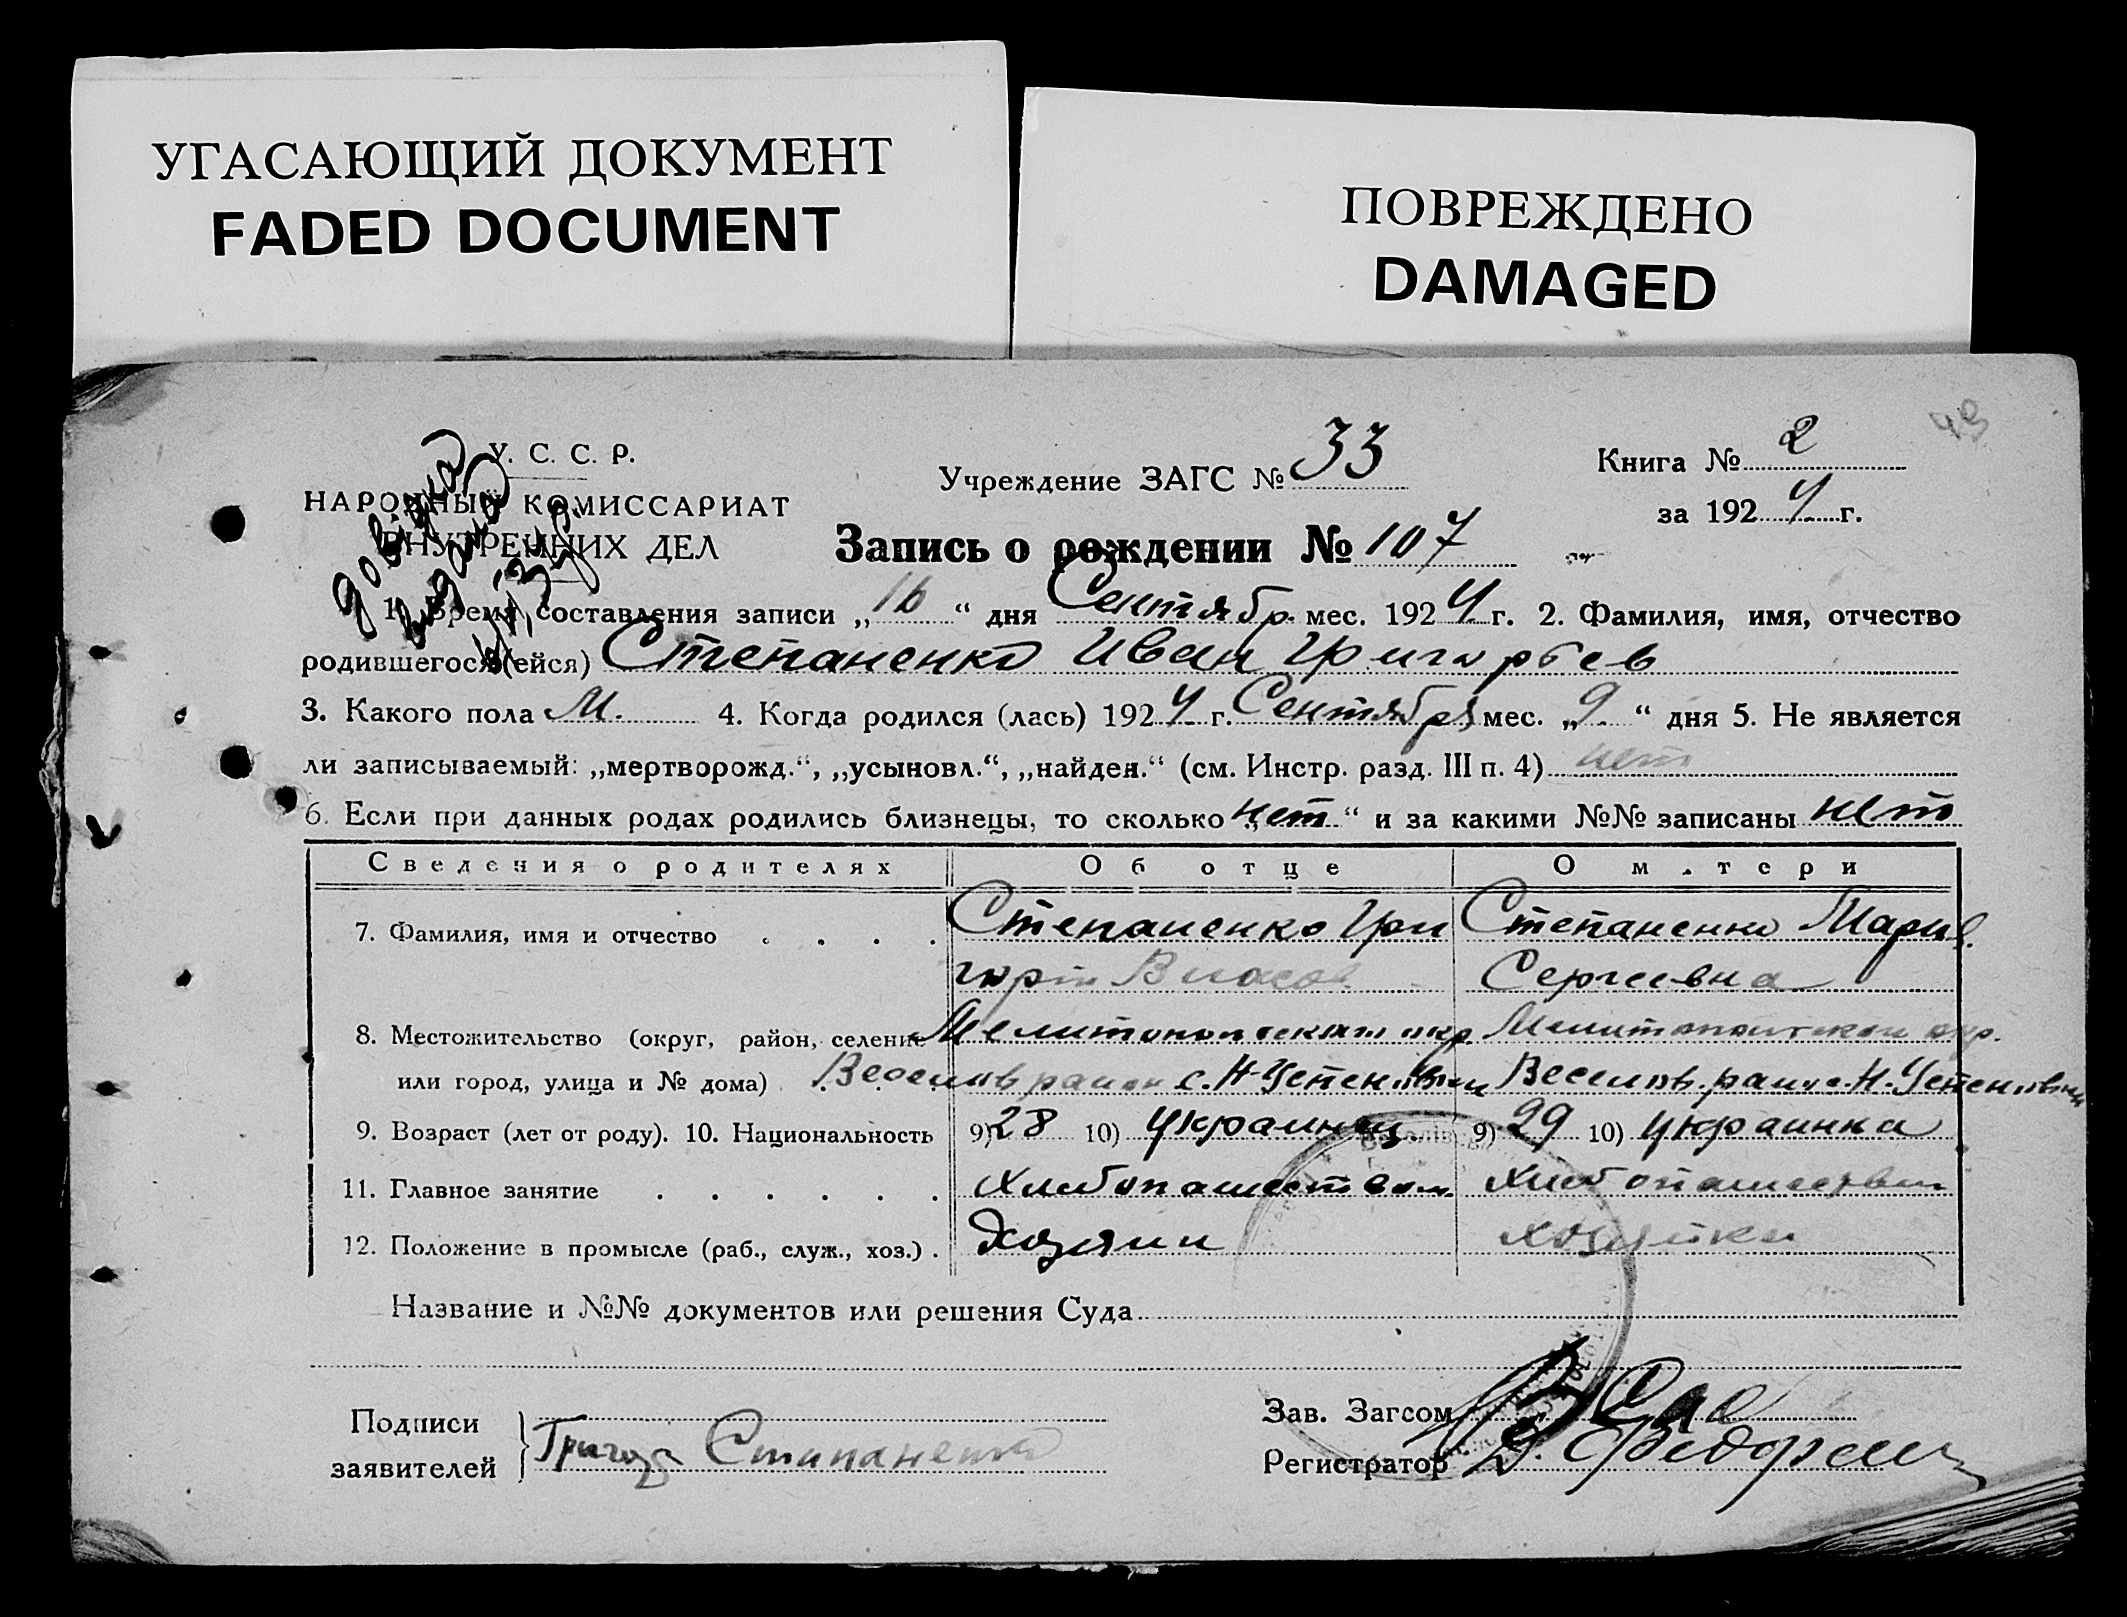 УГАСАЮЩИЙ ДОКУМЕНТ
FADED DOCUMENT
ПОВРЕЖДЕНО
DAMAGED
43
У. С. С. Р.
НАРОДНЫЙ КОМИССАРИАТ
ВНУТРЕННИХ ДЕЛ
довідка
видана
Учреждение ЗАГС № 33
Книга № 2
за 1924 г.
Запись о рождении № 107
1. Время составления записи „16“ дня Сентябр. мес. 1924 г. 2. Фамилия, имя, отчество
родившегося (ейся) Степаненко Иван Григорьев
3. Какого пола М. 4. Когда родился (лась) 1924 г. Сентября мес. „9.“ дня 5. Не является
ли записываемый: „мертворожд.“, „усыновл.“, „найден.“ (см. Инстр. разд. III п. 4) нет
6. Если при данных родах родились близнецы, то сколько „нет“ и за какими №№ записаны нет
Сведения о родителях Об отце О м.тери
7. Фамилия, имя и отчество . . . . Степаненко Гри Степаненко Мария
горий Власов Сергеевна
8. Местожительство (округ, район, селение Мелитопольской окр Мелитопольской окр.
или город, улица и № дома) Веселов район с. Н Успеновки Веселов. район с. Н. Успеновки
9. Возраст (лет от роду). 10. Национальность 9) 28 10) Украинец 9) 29 10) Украинка
11. Главное занятие . . . . . . Хлебопашеством Хлебопашеством
12. Положение в промысле (раб., служ., хоз.) . Хозяин хозяйка
Название и №№ документов или решения Суда
Подписи
заявителей } Григор Стипаненко
Зав. Загсом
Регистратор